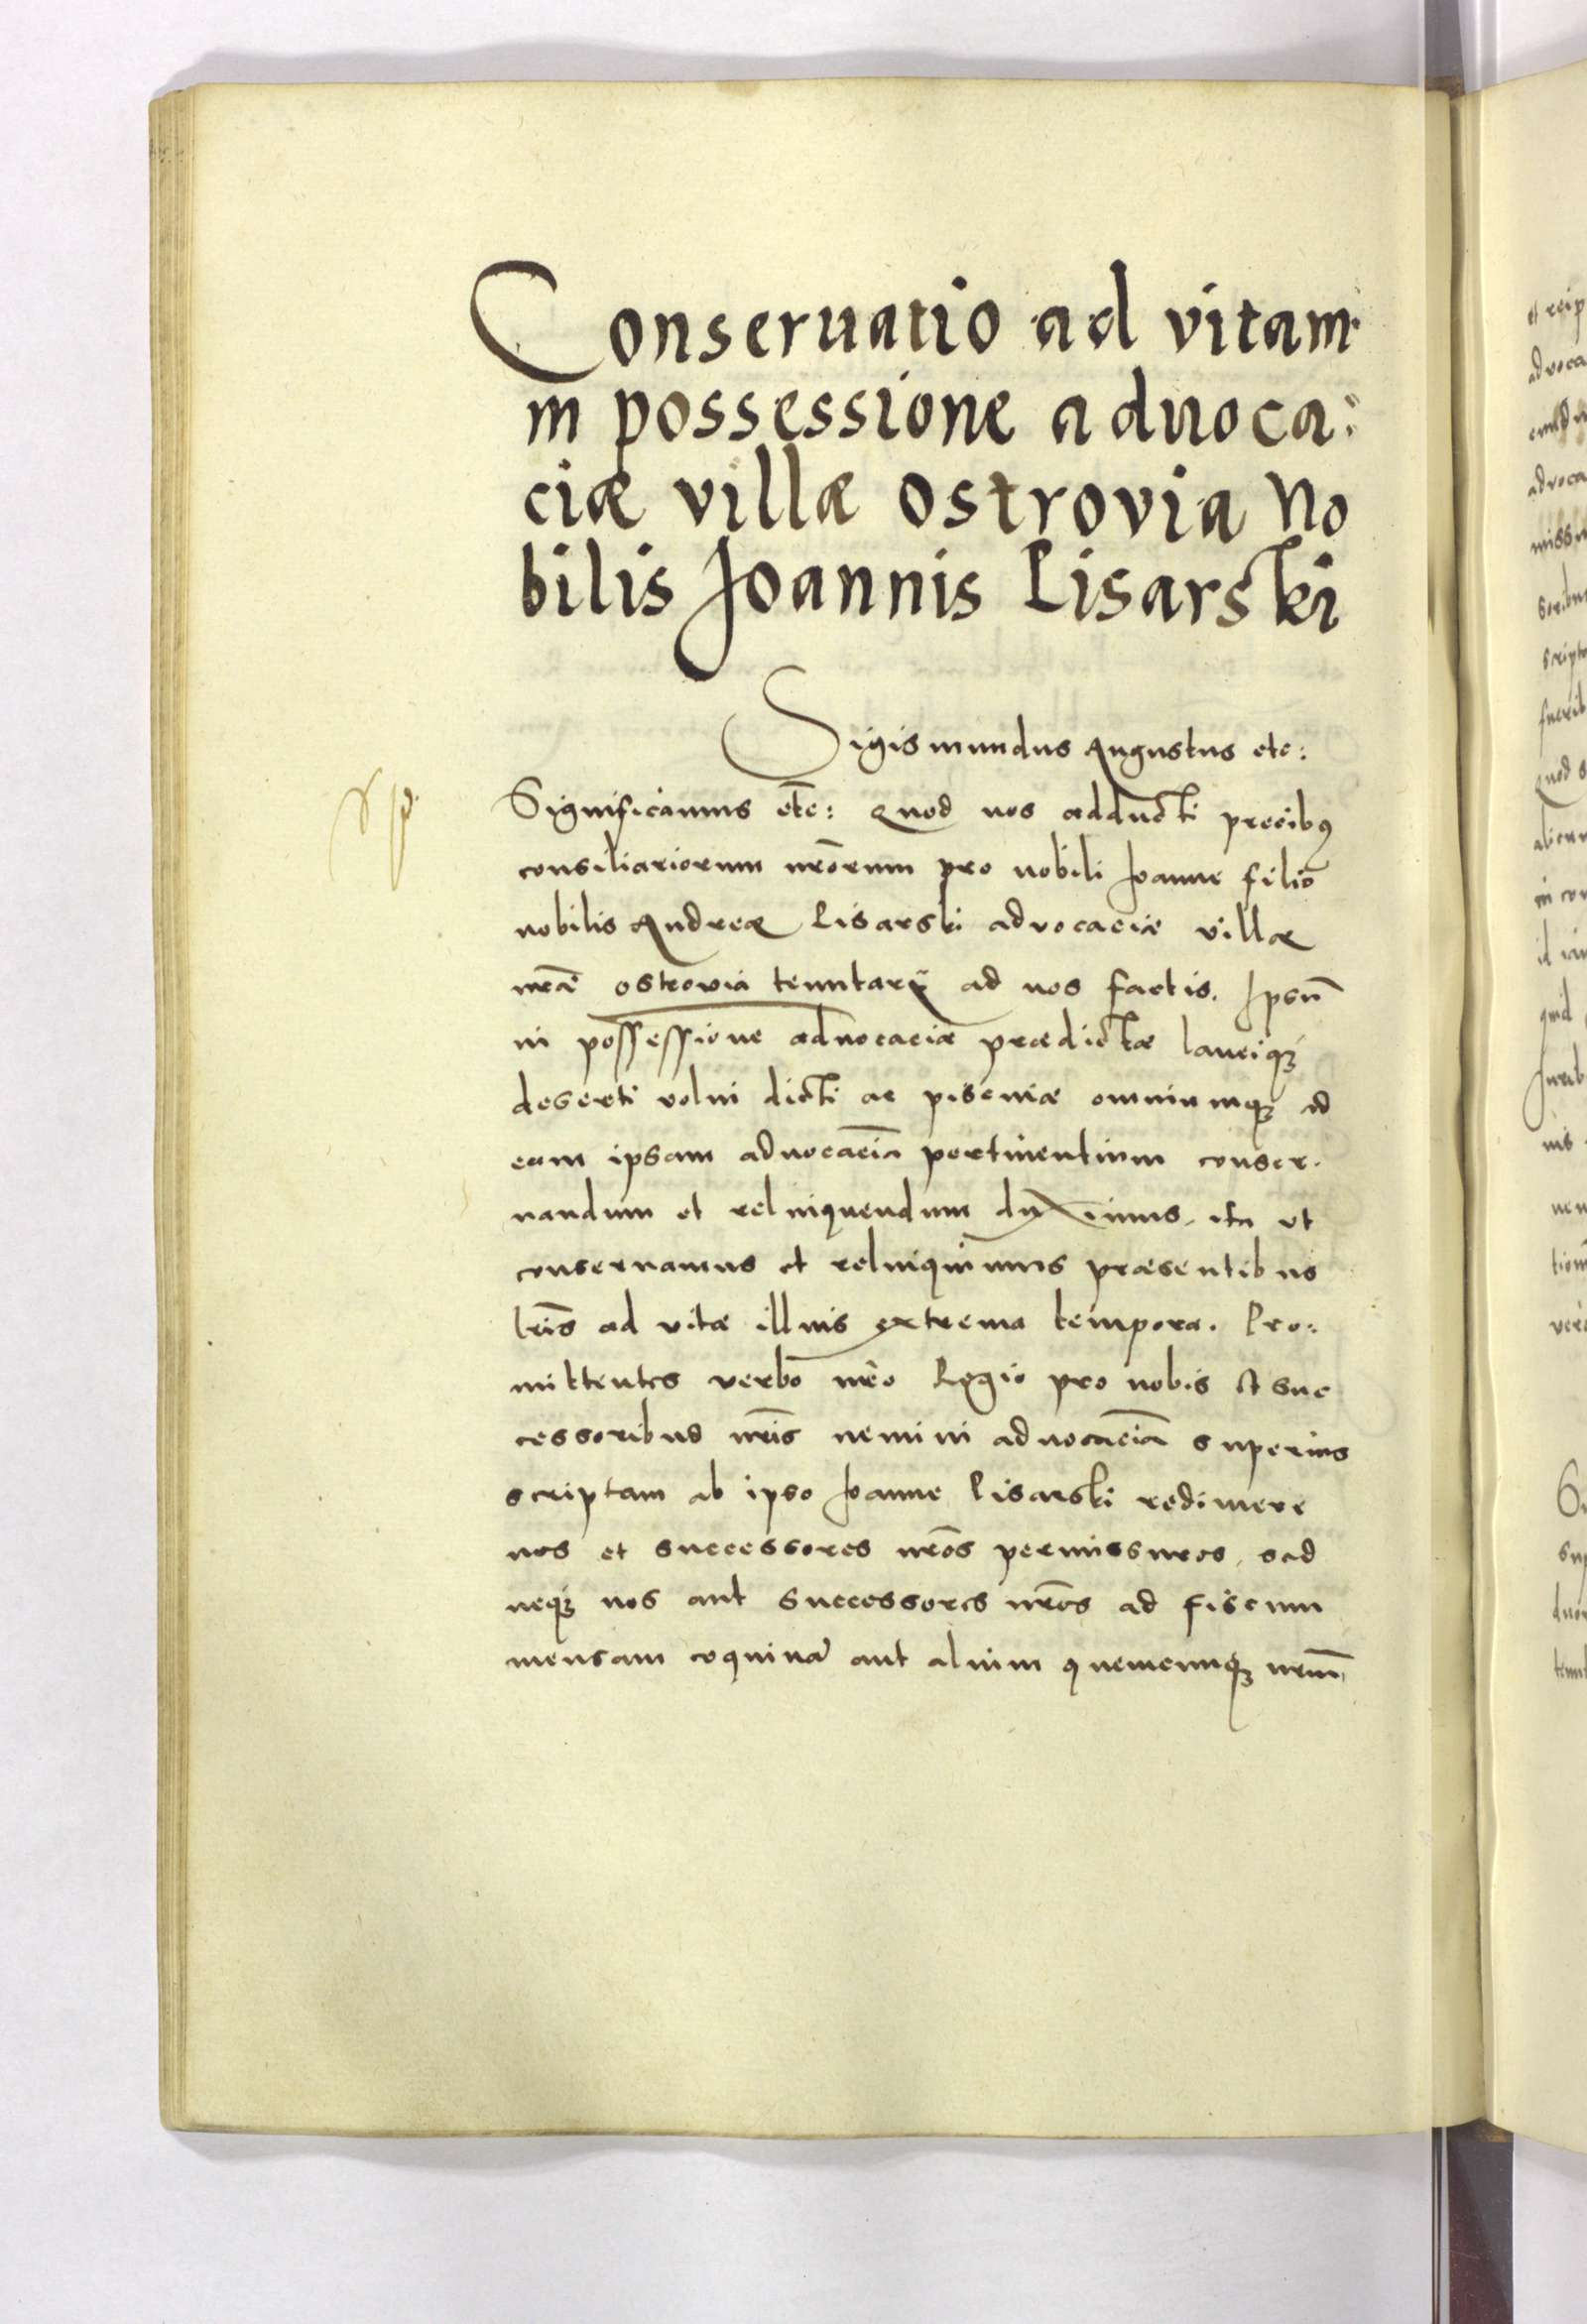 Conseruatio ad vitam
in possessione aduoca:
ciæ villæ Ostrovia No
bilis Joannis Lisarski
Sigismundus Augustus etc:
Significamus etc: Quod nos adducti precibꝰ
consiliariorum nr̄orum pro nobili Joanne filio
nobilis Andreæ Lisarski advocaciæ villæ
nr̄æ ostrovia tenutarÿ ad nos factis. Ipsū
in possessione aduocaciæ prædictæ laneiqꝫ
deserti volni dicti ac pisciniæ omniumqꝫ ad
eam ipsam aduocaciā pertinentium conser-
uandum et relinquendum duximus, ita ut
conseruamus et relinquimus præsentibus
lr̄is ad vitæ illius extrema tempora. Pro:
mittentes verbo nr̄o Regio pro nobis et suc
cessoribus nr̄is nemini aduocaciā superius
scriptam ab ipso Joanne Lisarski redimere
nos et successores nr̄os permissuros, sed
neqꝫ nos aut successores nr̄os ad fiscum
mensam coquinā aut alium quemcunqꝫ nr̄um
et reip
advoca
advoca
script
quod s